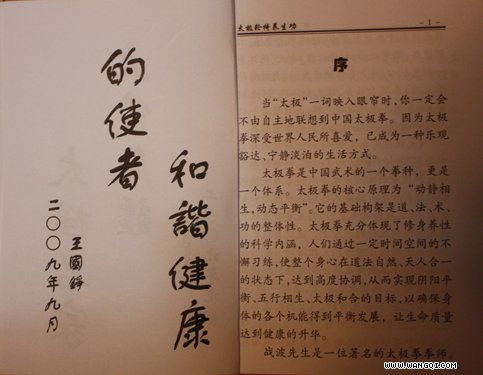 和諧健康
的使者
王國
二〇〇九年九月
太极轮椅养生功
- 1 -
序
当“太极”一词映入眼帘时，你一定会
不由自主地联想到中国太极拳。因为太极
拳深受世界人民所喜爱，已成为一种乐观
豁达、宁静淡泊的生活方式。
太极拳是中国武术的一个拳种，更是
一个体系。太极拳的核心原理为“动静相
生，动态平衡”。它的基础构架是道、法、术、
功的整体性。太极拳充分体现了修身养性
的科学内涵，人们通过一定时间空间的不
懈习练，使整个身心在道法自然、天人合一
的状态下，达到高度协调，从而实现阴阳平
衡、五行相生、太极和合的目标，以确保身
体的各个机能得到平衡发展，让生命质量
达到健康的升华。
战波先生是一位著名的太极拳拳师
www.wangqi.com